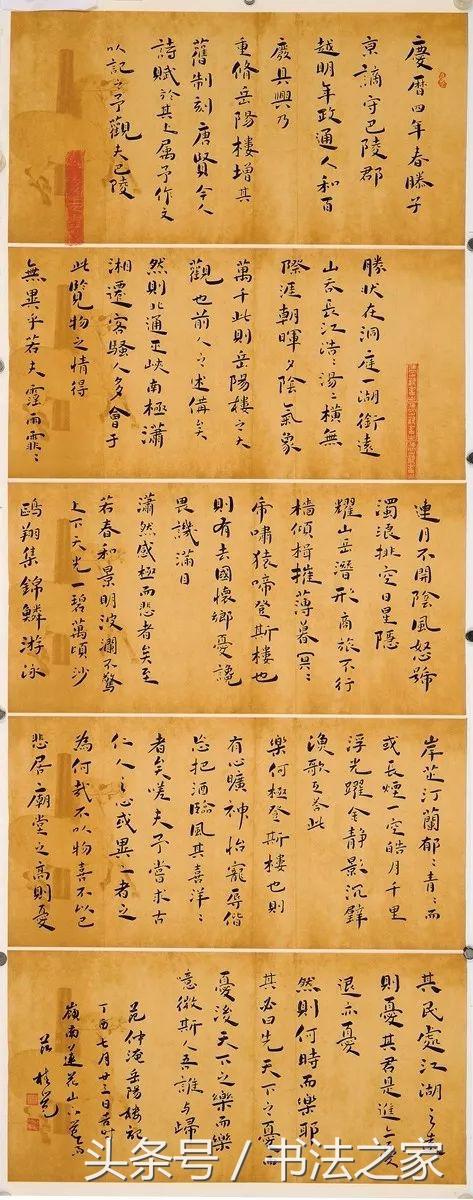 慶曆四年春滕子
京謫守巴陵郡
越明年政通人和百
廢具興乃
重脩岳陽樓增其
舊制刻唐賢今人
詩賦於其上属予作文
以記之予觀夫巴陵
勝狀在洞庭一湖銜遠
山吞長江浩〻湯〻橫無
際涯朝暉夕陰氣象
萬千此則岳陽樓之大
觀也前人之述備矣
然則北通巫峽南極瀟
湘遷客騷人多會于
此覽物之情得
無異乎若夫霪雨霏〻
連月不開陰風怒號
濁浪排空日星隱
耀山岳潛形商旅不行
檣傾楫摧薄暮冥〻
虎嘯猿啼登斯樓也
則有去國懷鄉憂讒
畏譏滿目
瀟然感極而悲者矣至
若春和景明波瀾不驚
上下天光一碧萬頃沙
鷗翔集錦鱗游泳
岸芷汀蘭郁〻青〻而
或長煙一空皓月千里
浮光躍金静影沉璧
漁歌互答此
樂何極登斯樓也則
有心曠神怡寵辱偕
忘把酒臨風其喜洋〻
者矣嗟夫予嘗求古
仁人之心或異二者之
為何哉不以物喜不以己
悲居廟堂之高則憂
其民處江湖之遠
則憂其君是進亦憂
退亦憂
然則何時而樂耶
其必曰先天下之憂而
憂後天下之樂而樂
噫微斯人吾誰與歸
范仲淹岳陽樓記
丁酉七月廿三日
嶺南蓮花山
头条号 / 书法之家